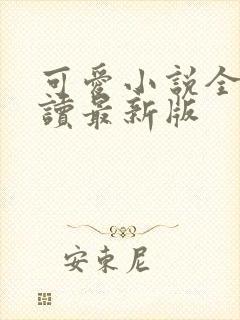 可愛小說全
讀最新版
安東尼